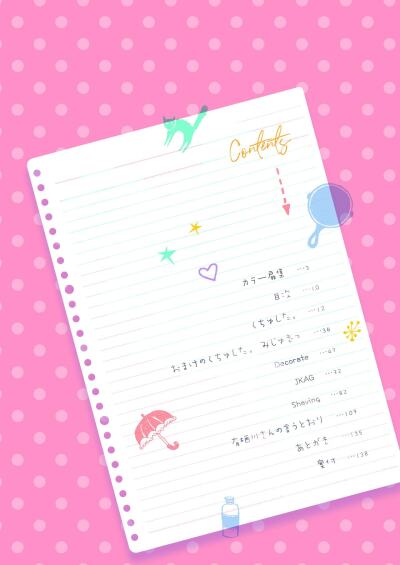 Contents
カラー扉集 …3
目次 …10
くちゅした。 …12
おまけのくちゅした。 みじゅきっ …36
Decorate …47
JKAG …72
Shaving …82
有栖川さんの言うとおり …109
あとがき …135
奥付 …138